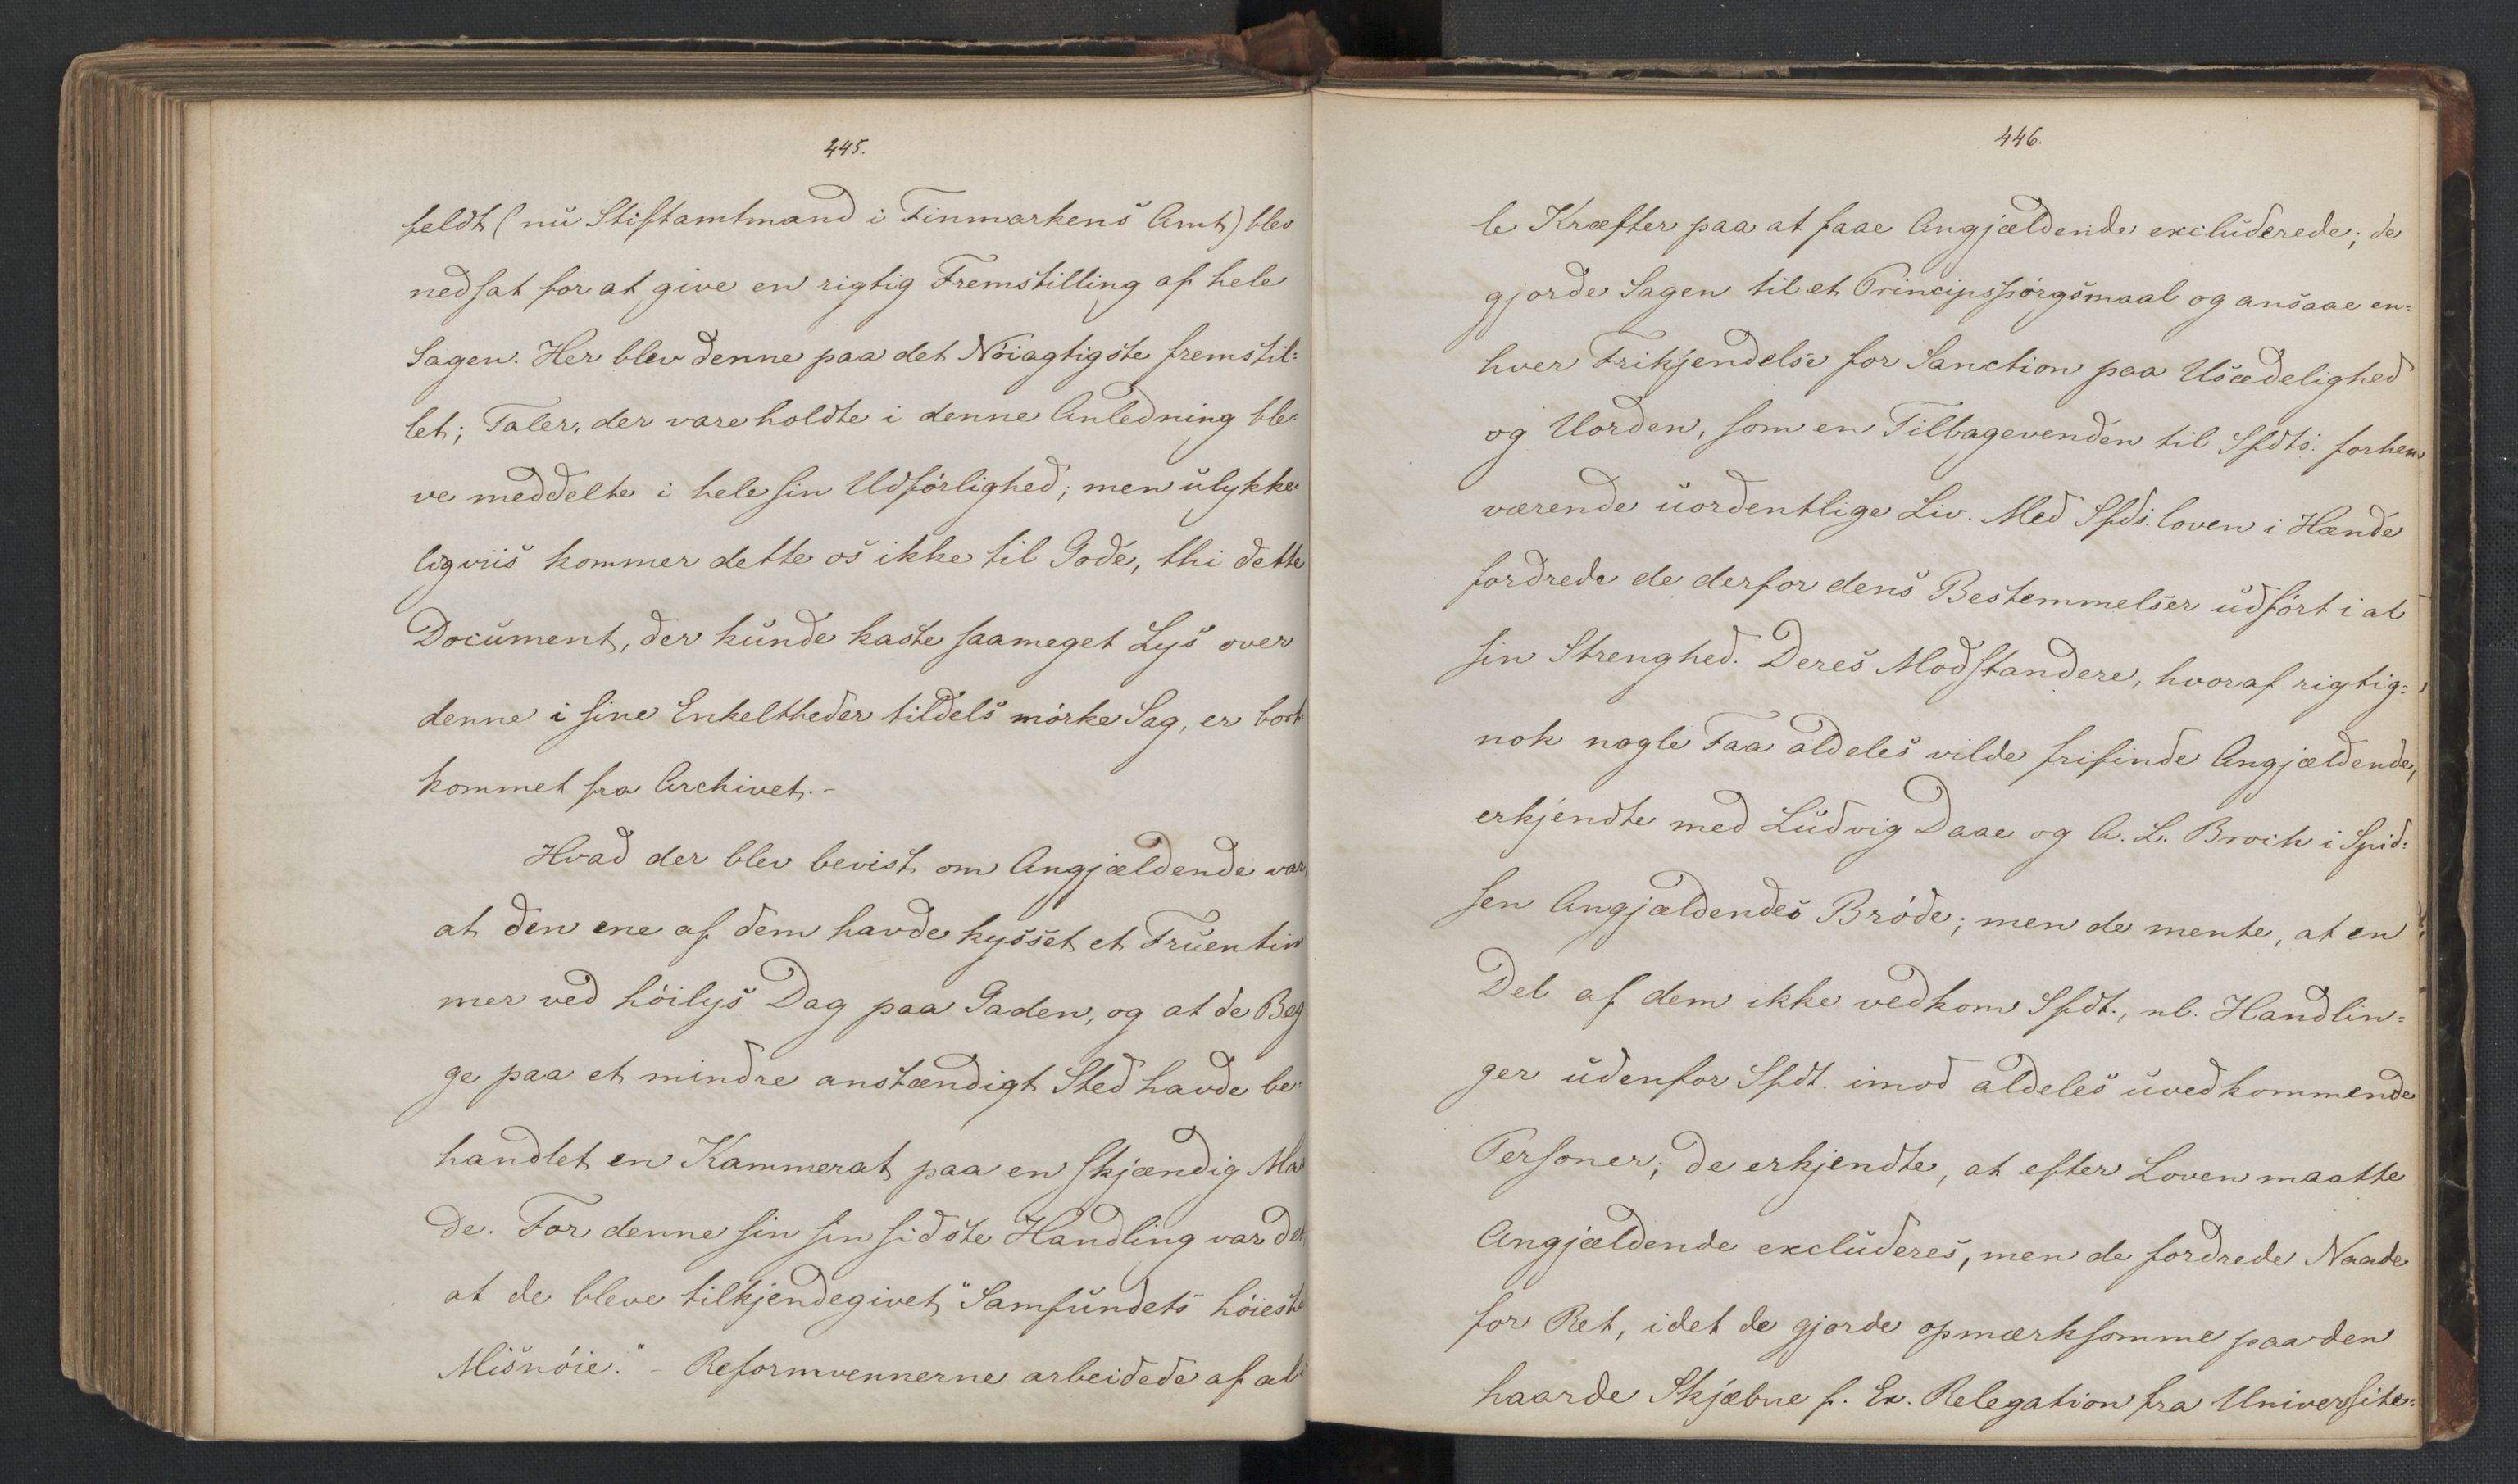 445.
feldt (nu Stiftamtmand i Finmarkens Amt) blev
nedsat for at give en rigtig Fremstilling af hele
Sagen. Her blev denne paa det Nöiagtigste fremstil=
let; Taler, der vare holdte i denne Anledning ble=
ve meddelte i hele sin Udförlighed; men ulykke=
ligviis kommer dette os ikke til Gode, thi dette
Document, der kunde kaste saameget Lys over
denne i sine Enkeltheder tildels mörke Sag, er bort=
kommet fra Archivet.-
Hvad der blev bevist om Angjældende var,
at den ene af dem havde kysset et Fruentim
mer ved höilys Dag paa Gaden, og at de Beg
ge paa et mindre anstændigt Sted havde be=
handlet en Kammerat paa en skjændig Maa
de. For denne sin sin sidste Handling var det
at de bleve tilkjendegivet "Samfundets höieste
Misnöie." - Reformvennerne arbeidede af al=
446.
le Kræfter paa at faae Angjældende excluderede; de
gjorde Sagen til et Principspörgsmaal og ansaae en=
hver Frikjendelse for Sanction paa Usædelighed
og Uorden, som en Tilbagevenden til Sfdts. forhen
værende uordentlige Liv. Med Sfds. loven i Hænde
fordrede de derfor dens Bestemmelser udfört i al
sin Strenghed. Deres Modstandere, hvoraf rigtig=
nok nogle Faa aldeles vilde frifinde Angjældende,
erkjendte med Ludvig Daae og A. L. Broch i Spid=
sen Angjældendes Bröde; men de mente, at en
Del af dem ikke vedkom Sfdt., nl. Handlin=
ger udenfor Sfdt. imod aldeles uvedkommende
Personer; de erkjendte, at efter Loven maatte
Angjældende excluderes, men de fordrede Naade
for Ret, idet de gjorde opmærksomme paa den
haarde Skjæbne f. Ex. Relegation fra Universite=